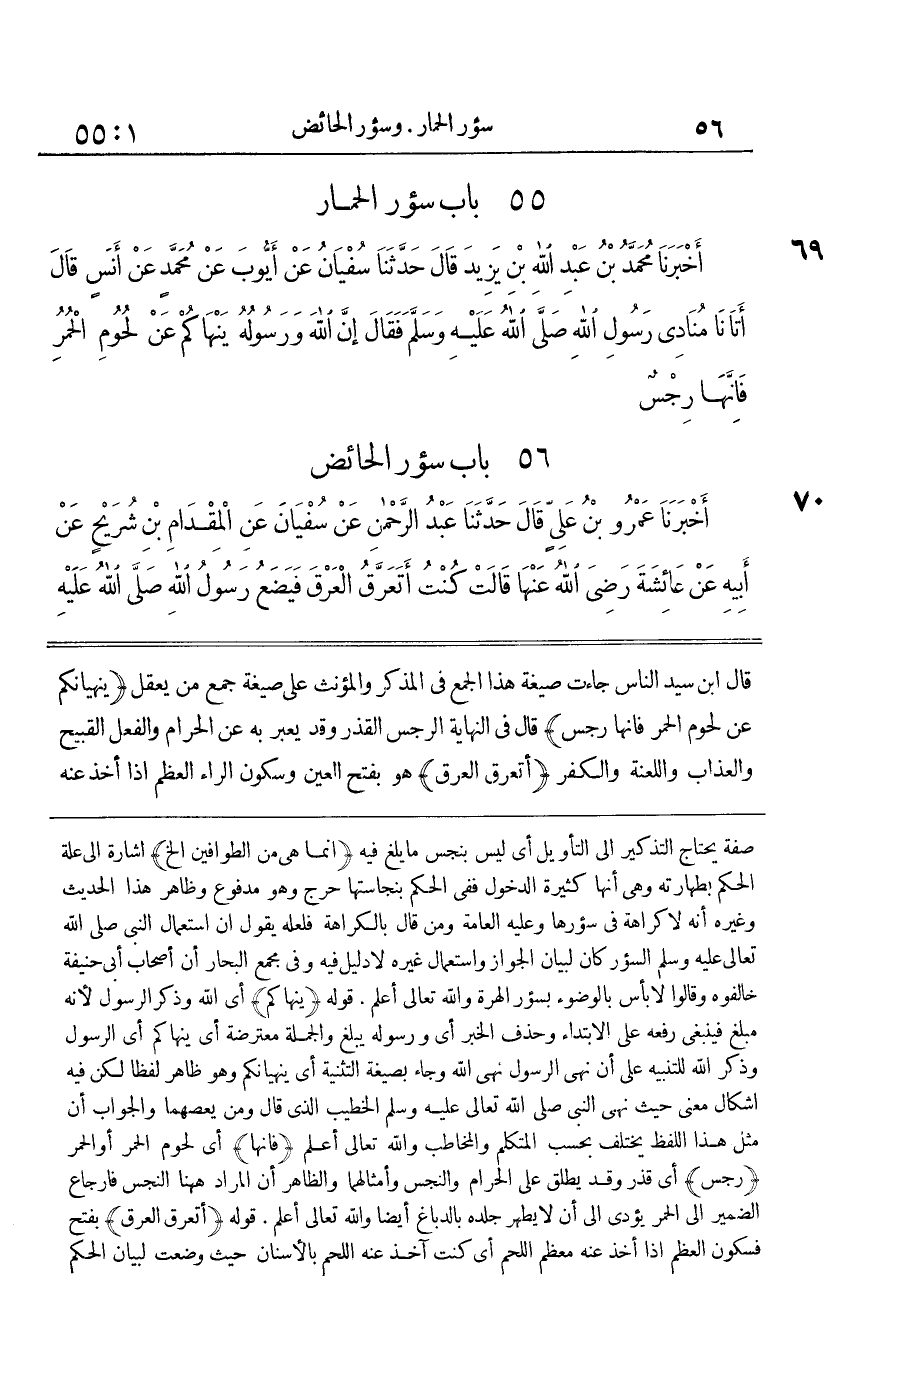 ٥٦ سؤر الحمار . وسؤر الحائض ١ : ٥٥
٥٥ باب سؤر الحمار
٦٩ أَخْبَرَنَا مُحَمَّدُ بْنُ عَبْدِ اللهِ بْنِ يَزِيدَ قَالَ حَدَّثَنَا سُفْيَانُ عَنْ أَيُّوبَ عَنْ مُحَمَّدٍ عَنْ أَنَسٍ قَالَ
أَتَانَا مُنَادِى رَسُولِ اللهِ صَلَّى اللهُ عَلَيْهِ وَسَلَّمَ فَقَالَ إِنَّ اللهَ وَرَسُولُهُ يَنْهَاكُمْ عَنْ لُحُومِ الْحُمُرِ
فَإِنَّهَا رِجْسٌ
٥٦ باب سؤر الحائض
٧٠ أَخْبَرَنَا عَمْرُو بْنُ عَلِيٍّ قَالَ حَدَّثَنَا عَبْدُ الرَّحْمٰنِ عَنْ سُفْيَانَ عَنِ الْمِقْدَامِ بْنِ شُرَيْحٍ عَنْ
أَبِيهِ عَنْ عَائِشَةَ رَضِىَ اللهُ عَنْهَا قَالَتْ كُنْتُ أَتَعَرَّقُ الْعَرْقَ فَيَضَعُ رَسُولُ اللهِ صَلَّى اللهُ عَلَيْهِ
قال ابن سيد الناس جاءت صيغة هذا الجمع فى المذكر والمؤنث على صيغة جمع من يعقل ﴿ينهيانكم
عن لحوم الحمر فانها رجس﴾ قال فى النهاية الرجس القذر وقد يعبر به عن الحرام والفعل القبيح
والعذاب واللعنة والكفر ﴿أتعرق العرق﴾ هو بفتح العين وسكون الراء العظم اذا أخذ عنه
صفة يحتاج التذكير الى التأويل أى ليس بنجس ما يلغ فيه ﴿انما هى من الطوافين الخ﴾ اشارة الى علة
الحكم بطهارته وهى أنها كثيرة الدخول ففى الحكم بنجاستها حرج وهو مدفوع وظاهر هذا الحديث
وغيره أنه لا كراهة فى سؤرها وعليه العامة ومن قال بالكراهة فلعله يقول ان استعمال النبى صلى الله
تعالى عليه وسلم السؤر كان لبيان الجواز واستعمال غيره لا دليل فيه وفى مجمع البحار أن أصحاب أبى حنيفة
خالفوه وقالوا لا بأس بالوضوء بسؤر الهرة والله تعالى أعلم . قوله ﴿ينهاكم﴾ أى الله وذكر الرسول لأنه
مبلغ فينبغى رفعه على الابتداء وحذف الخبر أى ورسوله يبلغ والجملة معترضة أى ينهاكم أى الرسول
وذكر الله للتنبيه على أن نهى الرسول نهى الله وجاء بصيغة التثنية أى ينهيانكم وهو ظاهر لفظا لكن فيه
اشكال معنى حيث نهى النبى صلى الله تعالى عليه وسلم الخطيب الذى قال ومن يعصهما والجواب أن
مثل هذا اللفظ يختلف بحسب المتكلم والمخاطب والله تعالى أعلم ﴿فانها﴾ أى لحوم الحمر أو الحمر
﴿رجس﴾ أى قذر وقد يطلق على الحرام والنجس وأمثالهما والظاهر أن المراد ههنا النجس فارجاع
الضمير الى الحمر يؤدى الى أن لا يطهر جلده بالدباغ أيضا والله تعالى أعلم . قوله ﴿أتعرق العرق﴾ بفتح
فسكون العظم اذا أخذ عنه معظم اللحم أى كنت آخذ عنه اللحم بالأسنان حيث وضعت لبيان الحكم